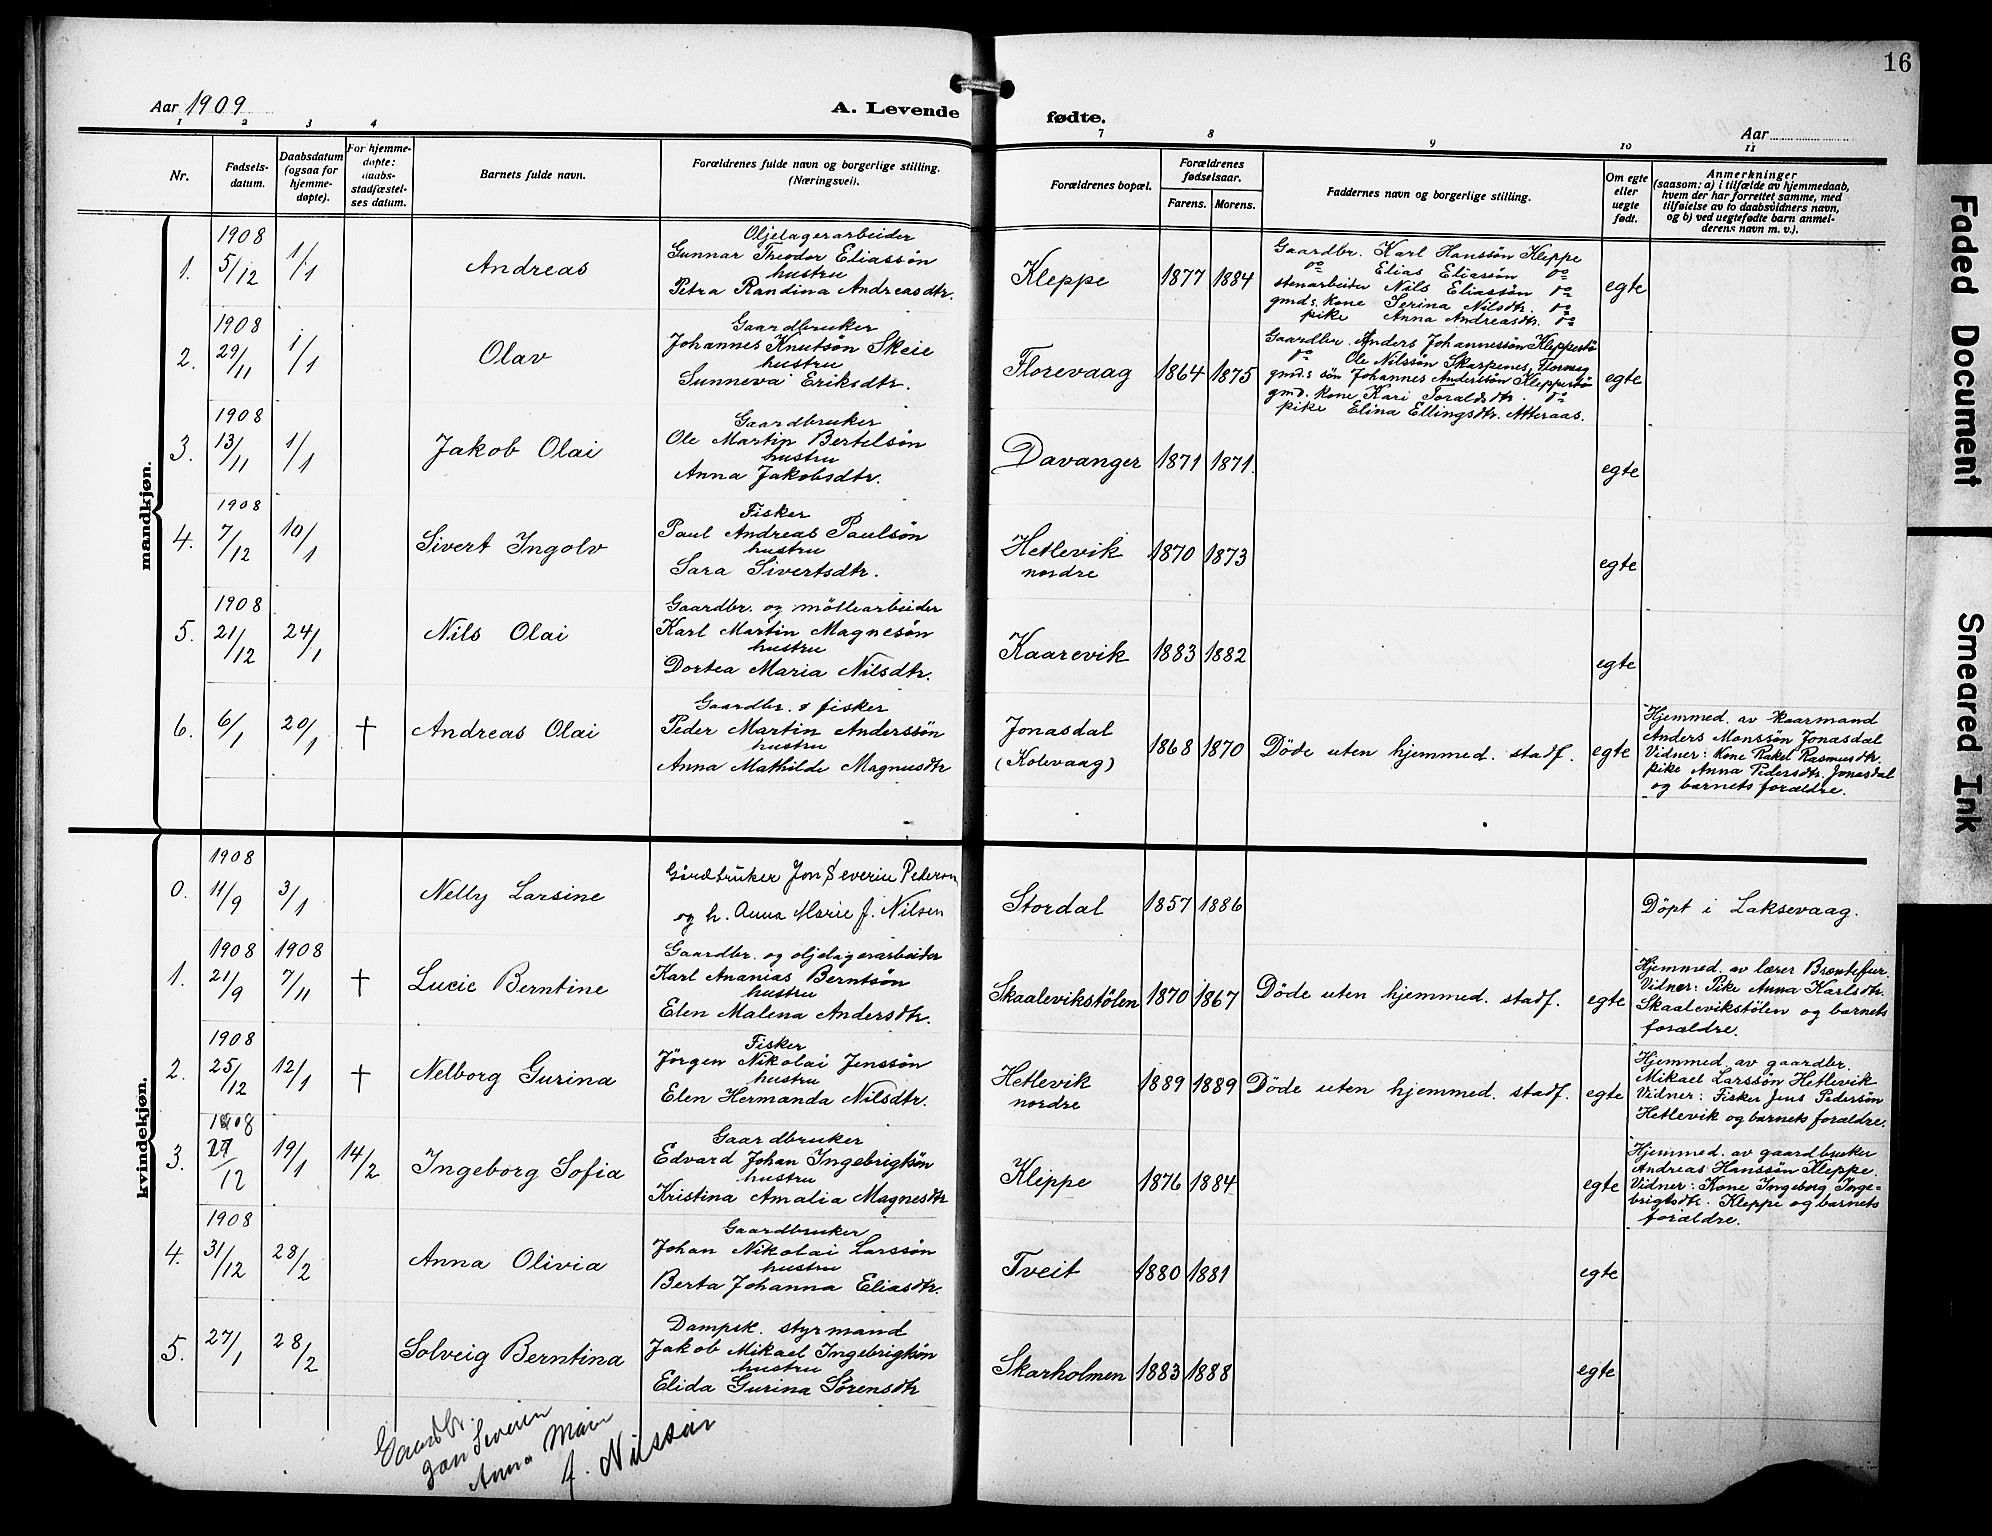 16
Aar 1909
A. Levende
fødte.
Aar
1 2 3 4 7 8 9 10 11
Nr.
Fødsels-
datum.
Daabsdatum
(ogsaa for
hjemme-
døpte).
For hjemme-
døpte:
daabs-
stadfæstel-
ses datum.
Barnets fulde navn.
Forældrenes fulde navn og borgerlige stilling.
(Næringsvei).
Forældrenes bopæl.
Forældrenes
fødselsaar.
Farens. Morens.
Faddernes navn og borgerlige stilling.
Om egte
eller
uegte
født.
Anmerkninger
(saasom: a) i tilfælde av hjemmedaab,
hvem der har forrettet samme, med
tilføielse av to daabsvidners navn,
og b) ved uegtefødte barn anmel-
derens navn m. v.).
mandkjøn.
1. 1908 5/12 1/1 Andreas
Oljelagerarbeider
Gunnar Theodor Eliassøn
hustru
Petra Randina Andreasdtr.
Kleppe 1877 1884
Gaardbr. Karl Hanssøn Kleppe
do Elias Eliassøn do
stenarbeider Nils Eliassøn do
gmds. kone Serina Nilsdtr. do
pike Anna Andreasdtr. do
egte
2. 1908 29/11 1/1 Olav
Gaardbruker
Johannes Knutsøn Skeie
hustru
Sunneva Eriksdtr.
Florevaag 1864 1875
Gaardbr. Anders Johannessøn Kleppestø
do Ole Nilssøn Skarpenes, Florvaag
gmd:s søn Johannes Anderssøn Kleppestø
gmd. kone Kari Toraldsdtr. do
pike Elina Ellingsdtr. Atteraas.
egte
3. 1908 13/11 1/1 Jakob Olai
Gaardbruker
Ole Martin Bertelsøn
hustru
Anna Jakobsdtr.
Davanger 1871 1871. egte
4. 1908 7/12 10/1 Sivert Ingolv
Fisker
Paul Andreas Paulsøn
hustru
Sara Sivertsdtr.
Hetlevik
nordre
1870 1873 egte
5. 1908 21/12 24/1 Nils Olai
Gaardbr. og møllearbeider
Karl Martin Magnesøn
hustru
Dortea Maria Nilsdtr.
Kaarevik 1883 1882 egte
6. 6/1 20/1 † Andreas Olai
Gaardbr. & fisker
Peder Martin Anderssøn
hustru
Anna Mathilde Magnusdtr
Jonasdal
(Kolevaag)
1868 1870 Døde uten hjemmed. stadf. egte
Hjemmed. av kaarmand
Anders Monssøn Jonasdal
Vidner: Kone Rakel Rasmusdtr.
pike Anna Pedersdtr. Jonasdal
og barnets forældre.
kvindekjøn.
0. 1908 11/9 3/1 Nelly Larsine
Gårdbruker Jon Severin Pederson
og h. Anna Marie J. Nilsen
Stordal 1857 1886
Døpt i Laksevaag.
1. 1908 21/9 1908 7/11 † Lucie Berntine
Gaardbr. og oljelagerarbeiter
Karl Ananias Berntsøn
hustru
Elen Malena Andersdtr.
Skaalevikstølen 1870 1867 Døde uten hjemmed. stadf. egte
Hjemmed. av lærer
Vidner: Pike Anna Karlsdtr.
Skaalevikstølen og barnets
forældre.
2. 1908 25/12 12/1 † Nelborg Gurina
Fisker
Jørgen Nikolai Jenssøn
hustru
Elen Hermanda Nilsdtr.
Hetlevik
nordre
1889 1889 Døde uten hjemmed. stadf. egte
Hjemmed. av gaardbr.
Mikael Larssøn Hetlevik
Vidner: Fisker Jens Pedersøn
Hetlevik og barnets forældre.
3. 1908 /12 19/1 14/2 Ingeborg Sofia
Gaardbruker
Edvard Johan Ingebrigtsøn
hustru
Kristina Amalia Magnesdtr
Kleppe 1876 1884 egte
Hjemmed. av gaardbruker
Andreas Hanssøn Kleppe.
Vidner: Kone Ingeborg Inge-
brigtsdtr. Kleppe og barnets
forældre.
4. 1908 31/12 28/2 Anna Olivia
Gaardbruker
Johan Nikolai Larssøn
hustru
Berta Johanna Eliasdtr.
Tveit 1880 1881 egte
5. 27/1 28/2 Solveig Berntina
Dampsk. styrmand
Jakob Mikael Ingebrigtsøn
hustru
Elida Gurina Sørensdtr
Skarholmen 1883 1888 egte
Gaardbr.
Jon Severin
Anna Marie
J. Nilssen
Faded Document
Smeared Ink